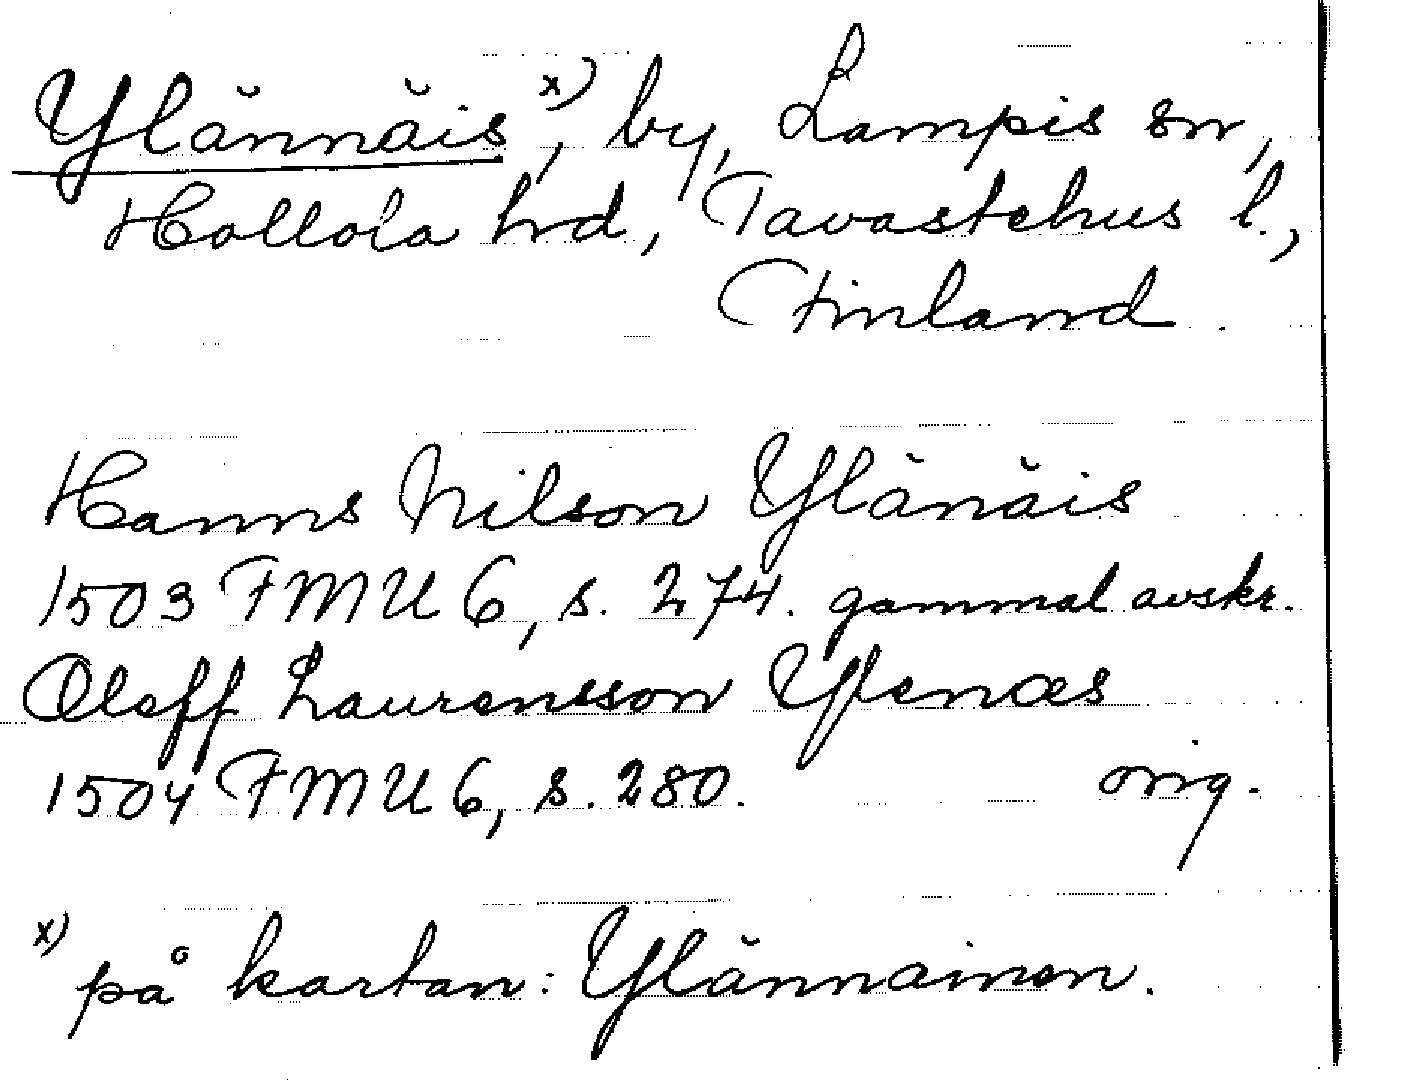 Ylännäis x), by, Lampis sn,
Hollola hrd, Tavastehus l.,
Finland.
Hanns Nilson Ylänäis
1503 FMU 6, s. 274. gammal avskr.
Oleff Laurensson Ylenæs
1504 FMU 6, s. 280. orig.
x) på kartan: Ylännainen.